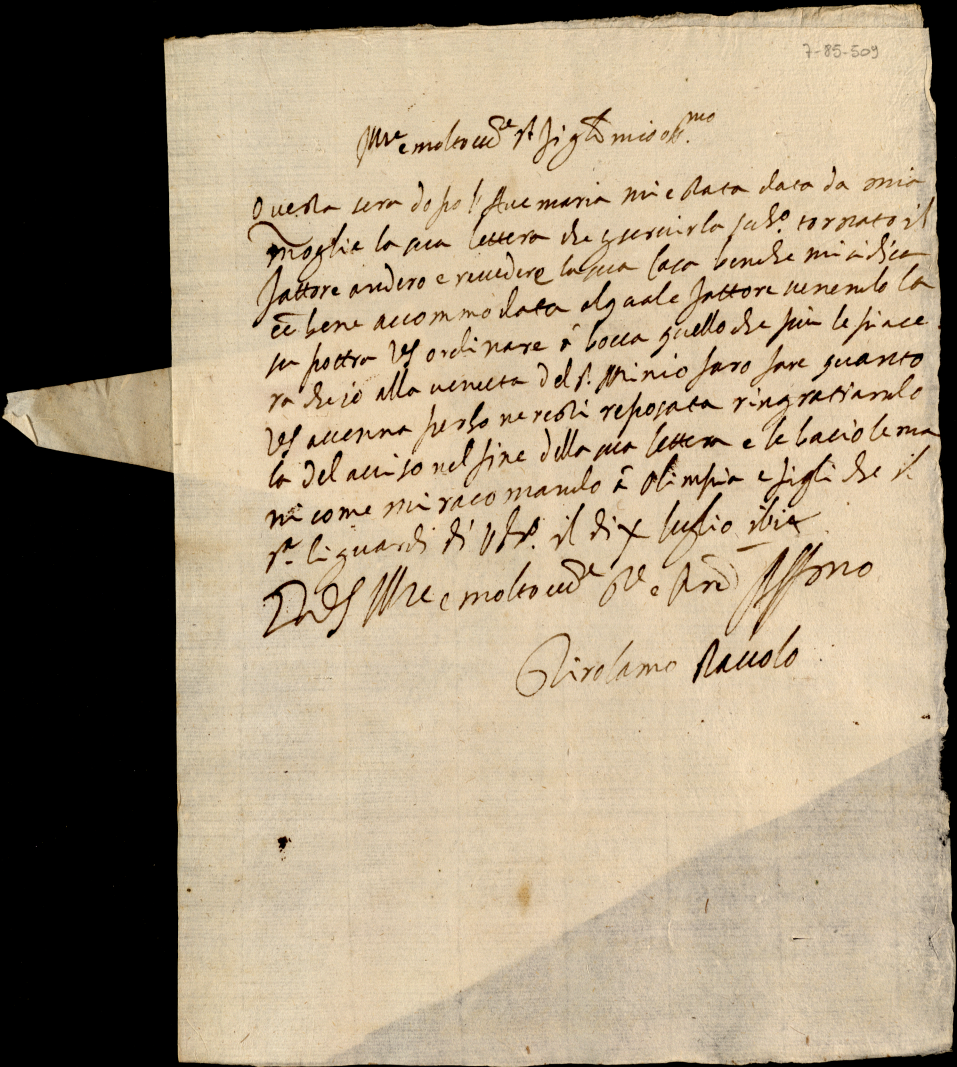 7-85-509
Ill.re e molto ecc.te S.r figl.o mio oss.mo
Questa sera dopo l'Avemaria mi è stata data da mia
moglie la sua lettera che p servirla sub.o tornato il
fattore andero e revedere la sua casa benche mi dica
bene accommodata al quale fattore venendo la
su pottra VS ordinare à bocca quello che piu le piace
ra che io alla venuta del s. Minio faro fare quanto
VS accenna resti reposata ringratiando
la del aviso nel fine della sua lettera e le bacio le ma
ni come mi racomando à Olimpia e figli che il
s.r li guardi di il di X luglio
D VS Ill.re e molto ecc.te e Aff.mo
Girolamo